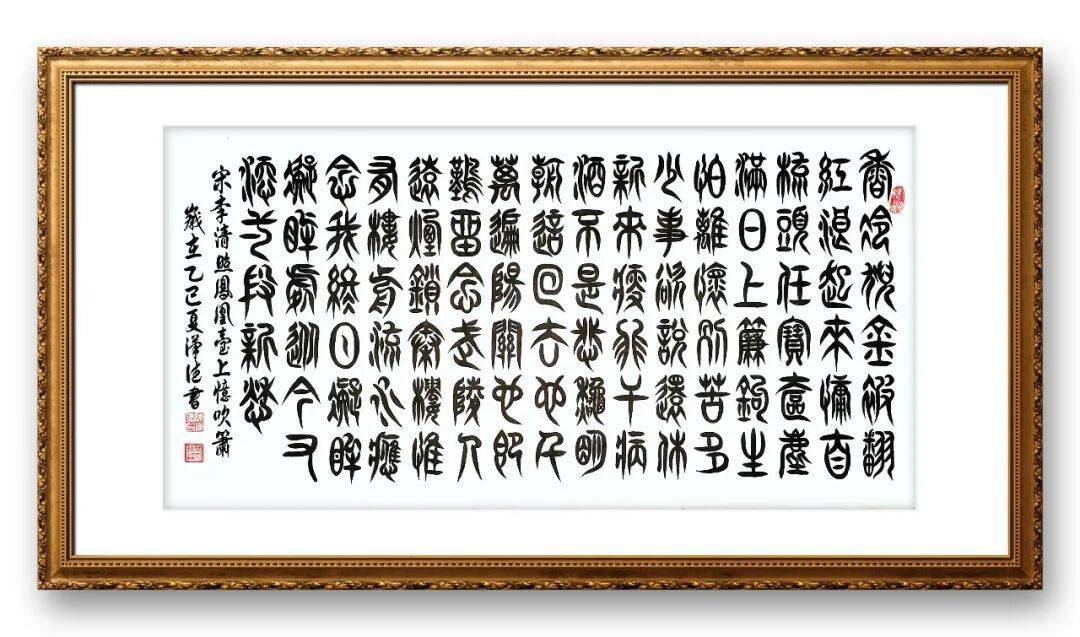 香冷猊金被翻
紅浪起來慵自
梳頭任寶奩塵
滿日上簾鉤生
怕離懷別苦多
少事欲說還休
新來瘦非干病
酒不是悲龝明
朝這回去也千
萬遍陽關也即
難留念武陵人
遠煙鎖秦樓惟
有樓前流水應
念我終日凝眸
凝眸處從今又
添弌段新愁
宋李清照鳳凰臺上憶吹簫
歲在乙巳夏書